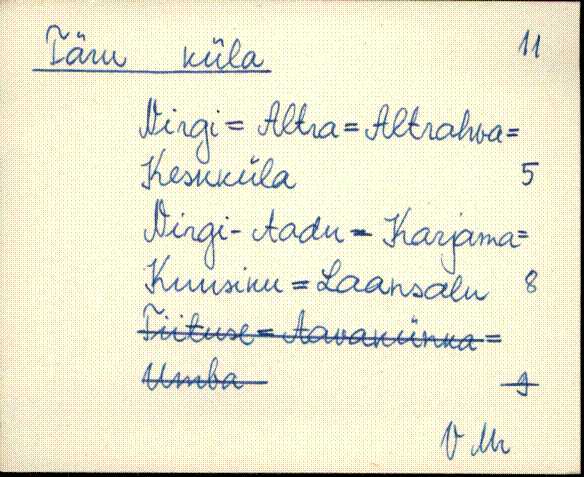 Täru küla 11
Nirgi = Altra = Altrahva =
Keskküla 5
Nirgi - Aadu - Karjama =
Kuusiku = Laansalu 8
Tiituse = Aavakünka =
Umba 9
V Mr